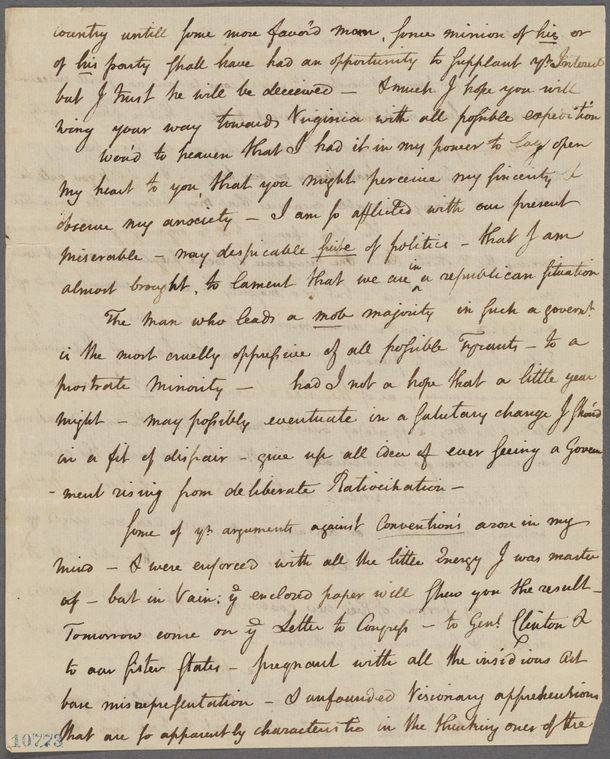 country untill some more favor'd man, some minion of his or
of his party shall have had an opportunity to supplant yr. Interest
but I trust he will be deceived — & much I hope you will
wing your way towards Virginia with all possible expedition
Wou'd to heaven that I had it in my power to lay open
my heart to you, that you might perceive my sincerity &
observe my anxciety — I am so afflicted with our present
miserable — nay despicable state of politics — that I am
almost brought, to lament that we are in a republican situation
The man who leads a mob majority in such a governt.
is the most cruelly oppressive of all possible Tyrants — to a
prostrate Minority — had I not a hope that a little year
might — may possibly eventuate in a salutary change I shou'd
in a fit of dispair — give up all idea of ever seeing a Govern
-ment rising from deliberate Ratiocination —
Some of yr. arguments against Convention's arose in my
mind — & were enforced with all the little Energy I was master
of — but in Vain: ye enclosed paper will shew you the result —
Tomorrow come on ye Letter to Congress — to Genl. Clinton &
to our sister States — pregnant with all the insidious Art
bare misrepresentation — & unfounded Visionary apprehensions
that are so apparently characteristic in the thinking ones of the
10773